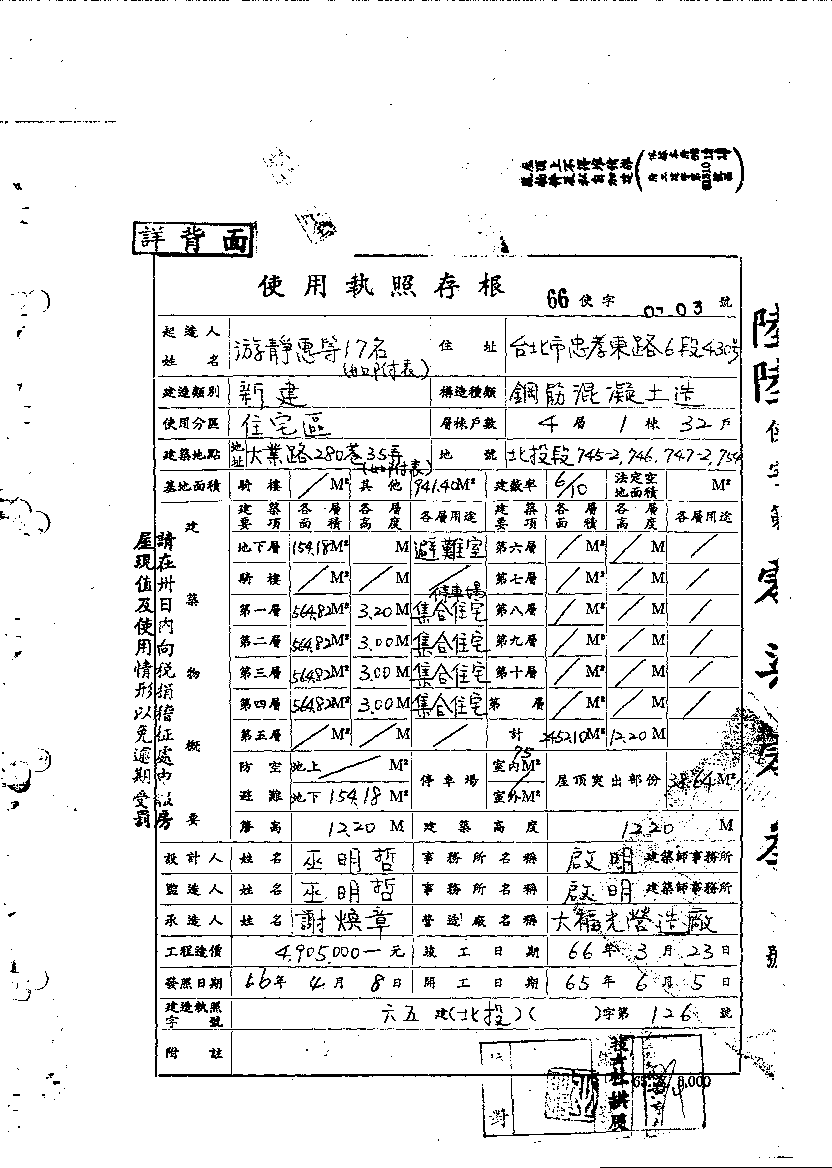 詳背面
使用執照存根
66 使字 0703 號
起造人姓名 游靜惠等17名 (如附表) 住址 台北市忠孝東路6段430号
建造類別 新建 構造種類 鋼筋混凝土造
使用分區 住宅區 層棟戶數 4層 1棟 32戶
建築地點 地址 大業路280巷35弄 (如附表) 地號 北投段745-2,746,747-2,754
基地面積 騎樓 / M² 其他 941.40M² 建蔽率 6/10 法定空地面積 M²
建築要項 各層面積 各層高度 各層用途 建築要項 各層面積 各層高度 各層用途
地下層 154.18M² M 避難室 第六層 / M² / M /
騎樓 / M² / M / 第七層 / M² / M /
停車場
第一層 564.82M² 3.20M 集合住宅 第八層 / M² / M /
第二層 564.82M² 3.00M 集合住宅 第九層 / M² / M /
第三層 564.82M² 3.00M 集合住宅 第十層 / M² / M /
第四層 564.82M² 3.00M 集合住宅 第 層 / M² / M /
第五層 / M² / M / 計 2452.10M² 12.20M
建築物概要
防空避難 地上 / M² 停車場 室內 75 M² 屋頂突出部份 38.64M²
地下 154.18 M² 室外 / M²
簷高 12.20 M 建築高度 12.20 M
設計人 姓名 巫明哲 事務所名稱 啟明 建築師事務所
監造人 姓名 巫明哲 事務所名稱 啟明 建築師事務所
承造人 姓名 謝煥章 營造廠名稱 大福光營造廠
工程造價 4,905,000一元 竣工日期 66年3月23日
發照日期 66年4月8日 開工日期 65年6月5日
建造執照字號 六五建(北投)( )字第126號
附註
請在卅日內向稅捐稽征處申報房
屋現值及使用情形以免逾期受罰
陸陸使字第
號
對
8,000